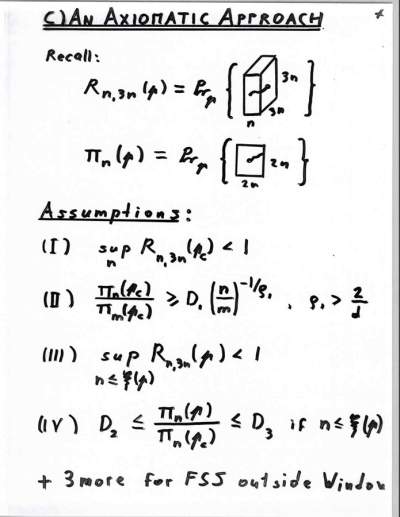 C) AN AXIOMATIC APPROACH
Recall:
R_{n,3n}(p) = Pr_p { 3n 3n n }
π_n(p) = Pr_p { 2n 2n }
Assumptions:
(I) sup_n R_{n,3n}(p_c) < 1
(II) π_n(p_c) / π_m(p_c) ≥ D_1 (n/m)^{-1/ρ_1} , ρ_1 > 2/d
(III) sup_{n≤ξ(p)} R_{n,3n}(p) < 1
(IV) D_2 ≤ π_n(p) / π_n(p_c) ≤ D_3 if n≤ξ(p)
+ 3 more for FSS outside Window